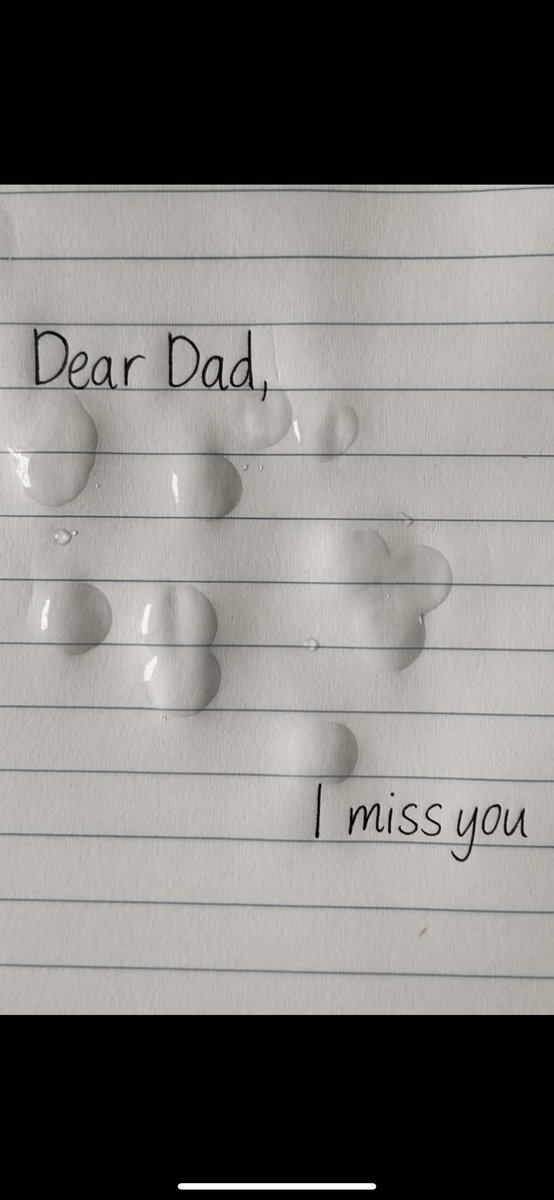 Dear Dad,
I miss you